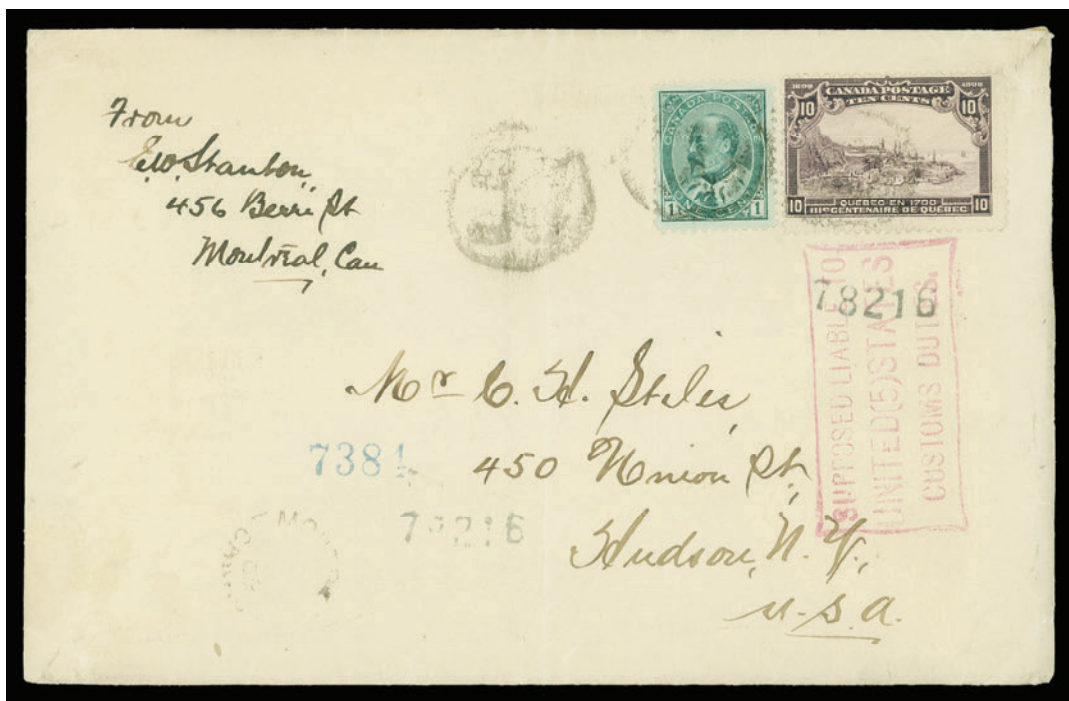 From
E.W. Stanton
456 Berri St
Montreal, Can
CANADA POSTAGE
1 ONE CENT 1
1608 1908
CANADA POSTAGE
TEN CENTS
10 10
QUEBEC EN 1700
10 10
IIIe CENTENAIRE DE QUEBEC
R
SUPPOSED LIABLE TO
UNITED(5)STATES
CUSTOMS DUTIES.
78216
Mr C. H. Stiles,
7384
450 Union St,
78216
Hudson, N.Y.,
U.S.A.